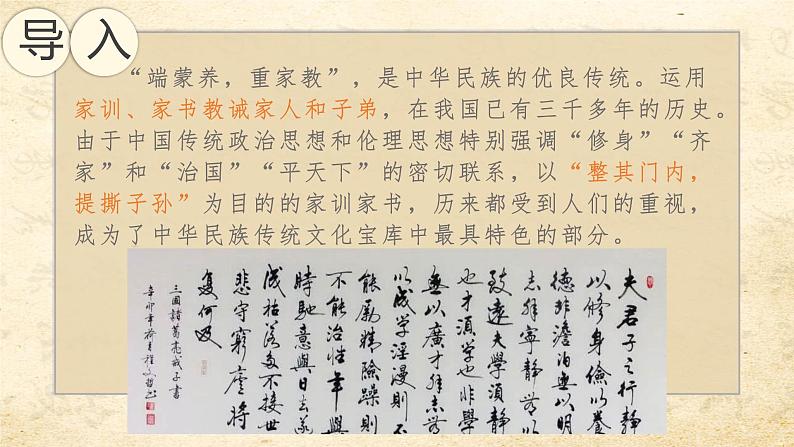 导入
“端蒙养，重家教”，是中华民族的优良传统。运用
家训、家书教诫家人和子弟，在我国已有三千多年的历史。
由于中国传统政治思想和伦理思想特别强调“修身”“齐
家”和“治国”“平天下”的密切联系，以“整其门内，
提撕子孙”为目的的家训家书，历来都受到人们的重视，
成为了中华民族传统文化宝库中最具特色的部分。
夫君子之行靜
以修身儉以養
德非澹泊無以明
志非寧靜無以
致遠夫學須靜
也才須學也非學
無以廣才非志無
以成學淫漫則不
能勵精險躁則
不能治性年與
時馳意與日去遂
成枯落多不接世
悲守窮廬將
復何及
三國諸葛亮戒子書
辛卯年